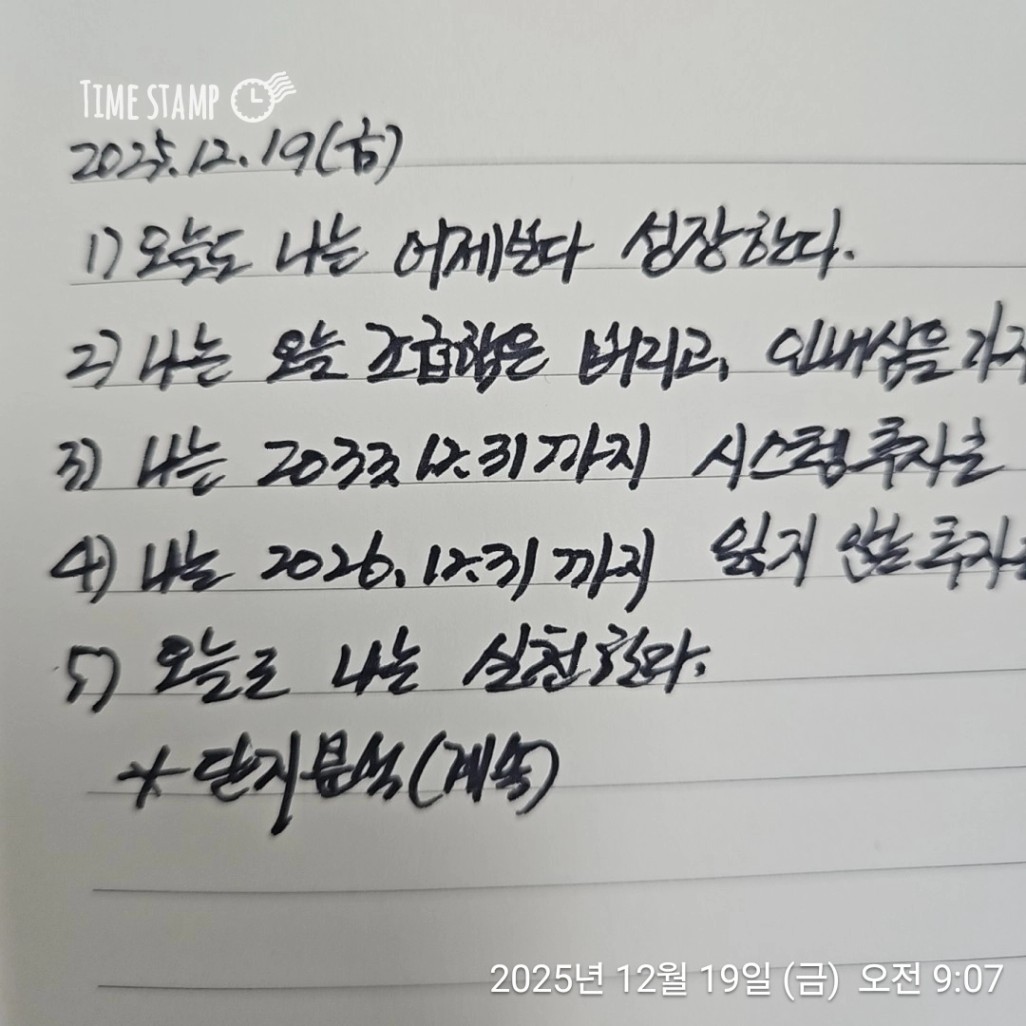 TIME STAMP
2025.12.19(금)
1) 오늘도 나는 어제보다 성장한다.
2) 나는 오늘 조급함은 버리고, 인내심을 가지
3) 나는 2033.12.31까지 시스템 투자를
4) 나는 2026.12.31까지 잃지 않는 투자를
5) 오늘도 나는 실천한다.
* 단지분석(계속)
2025년 12월 19일 (금) 오전 9:07